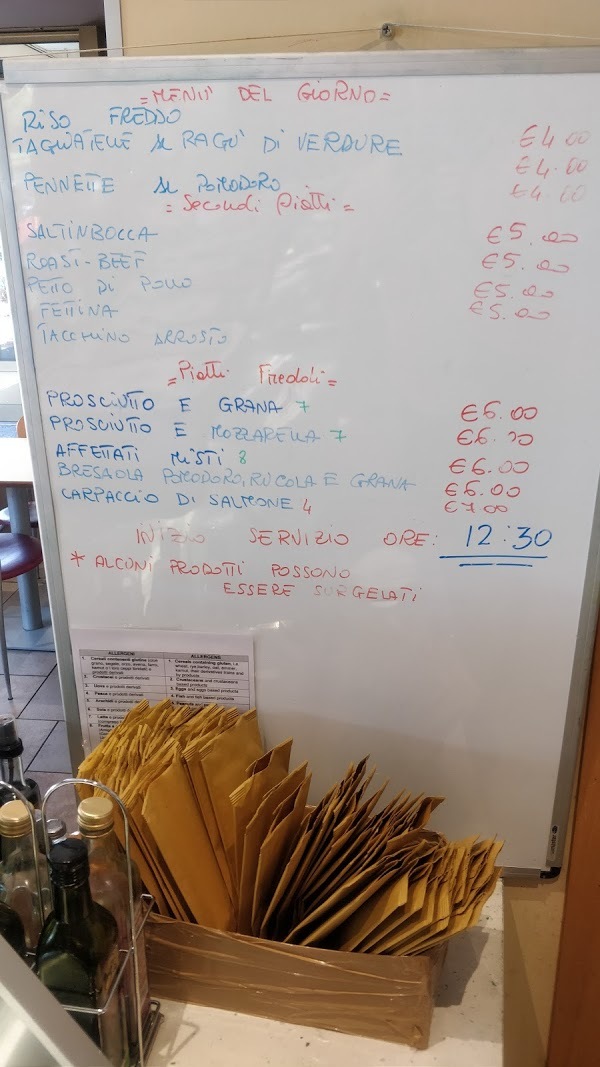 =MENU' DEL GIORNO=
RISO FREDDO €4.00
TAGLIATELLE AL RAGU' DI VERDURE €4.00
PENNETTE AL POMODORO €4.00
=Secondi Piatti=
SALTINBOCCA €5.00
ROAST-BEEF €5.00
PETTO DI POLLO €5.00
FETTINA €5.00
TACCHINO ARROSTO
=Piatti Freddi=
PROSCIUTTO E GRANA 7 €6.00
PROSCIUTTO E MOZZARELLA 7 €6.00
AFFETTATI MISTI 8 €6.00
BRESAOLA POMODORO, RUCOLA E GRANA €6.00
CARPACCIO DI SALMONE 4 €7.00
INIZIO SERVIZIO ORE: 12:30
* ALCUNI PRODOTTI POSSONO
ESSERE SURGELATI
ALLERGENI ALLERGENS
1. Cereali contenenti glutine 1. Cereals containing gluten, i.e.
2. Crostacei e prodotti derivati 2. Crustaceans and crustaceans based products
3. Uova e prodotti derivati 3. Eggs and eggs based products
4. Pesce e prodotti derivati 4. Fish and fish based products